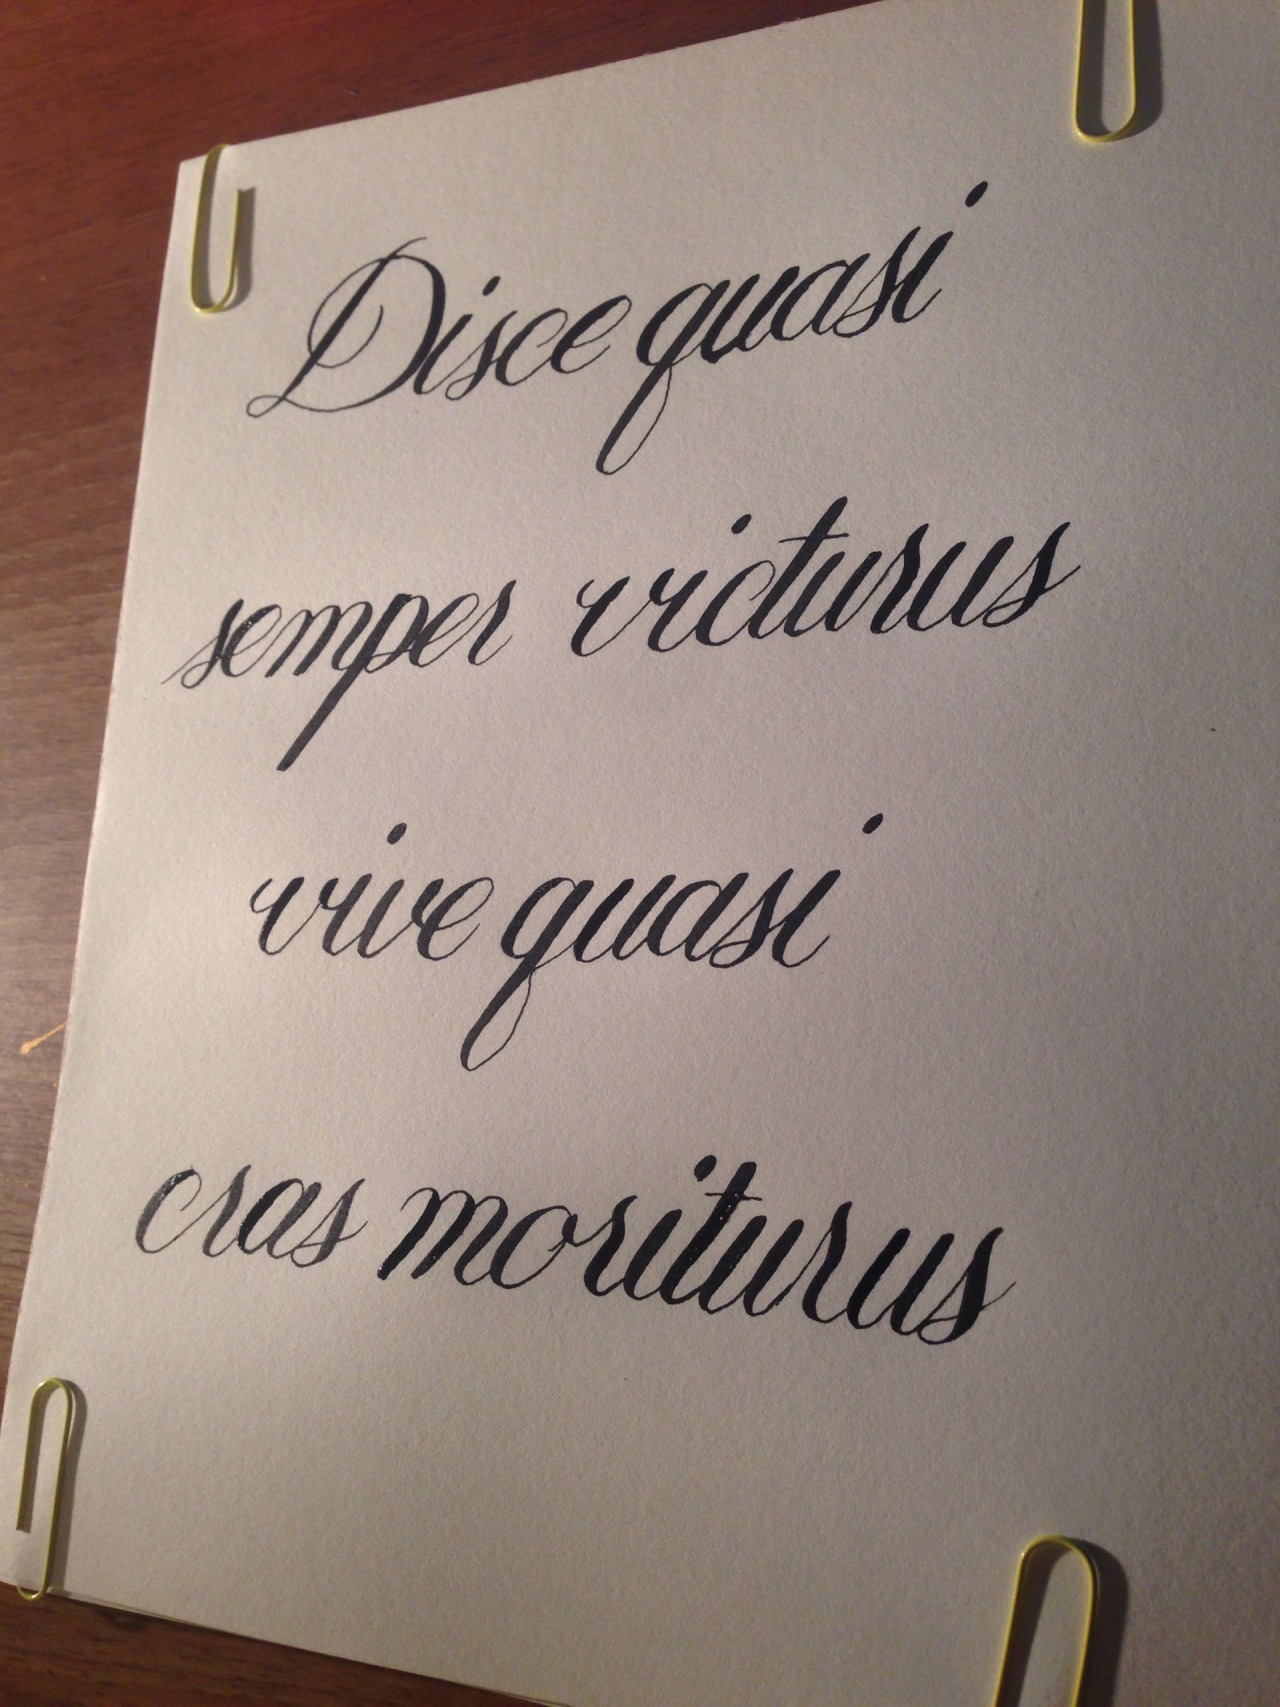 Disce quasi
semper victurus
vive quasi
cras moriturus